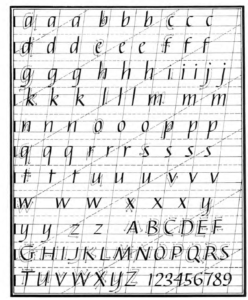 a a a b b b c c c
d d d e e e f f f
g g g h h h i i i j j j
k k k l l l m m m
n n n o o o p p p
q q q r r r s s s s
t t t u u u v v v
w w w x x x y
y y z z z A B C D E F
G H I J K L M N O P Q R S
T U V W X Y Z 1 2 3 4 5 6 7 8 9